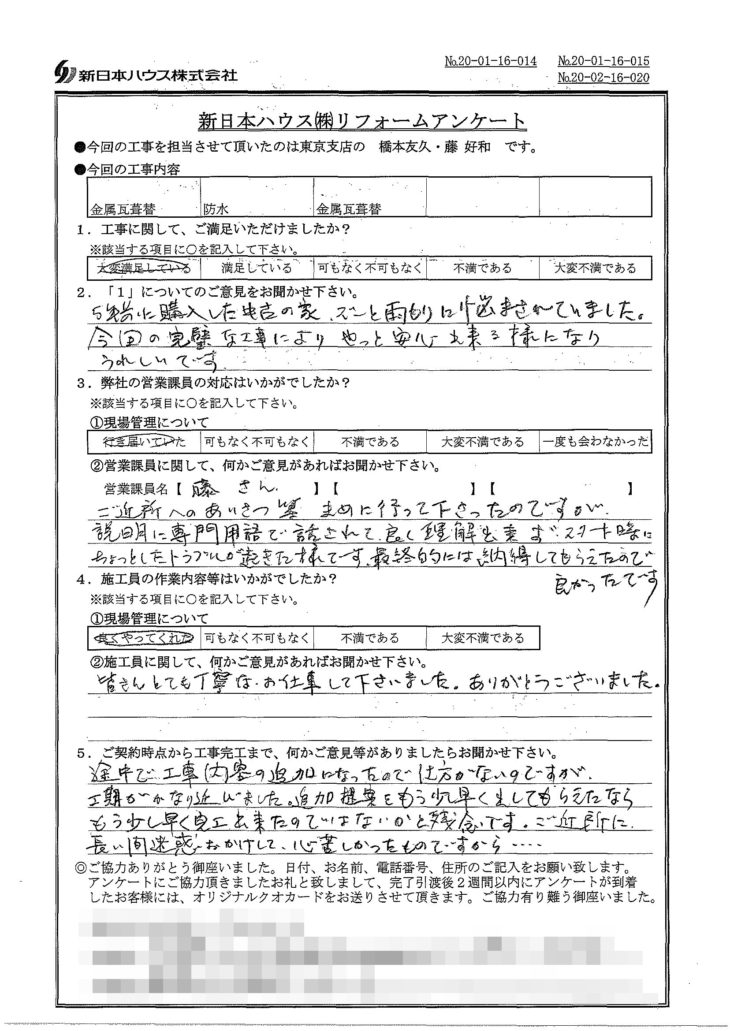 新日本ハウス株式会社
№20-01-16-014 №20-01-16-015
№20-02-16-020
新日本ハウス㈱リフォームアンケート
●今回の工事を担当させて頂いたのは東京支店の 橋本友久・藤 好和 です。
●今回の工事内容
金属瓦葺替 防水 金属瓦葺替
1．工事に関して、ご満足いただけましたか？
※該当する項目に○を記入して下さい。
大変満足している 満足している 可もなく不可もなく 不満である 大変不満である
2．「1」についてのご意見をお聞かせ下さい。
5年前に購入した中古の家、ズーと雨もりに悩まされていました。
今回の完璧な工事により やっと安心出来る様になり
うれしいです
3．弊社の営業課員の対応はいかがでしたか？
※該当する項目に○を記入して下さい。
①現場管理について
行き届いていた 可もなく不可もなく 不満である 大変不満である 一度も会わなかった
②営業課員に関して、何かご意見があればお聞かせ下さい。
営業課員名【 藤 さん 】【 】【 】
ご近所へのあいさつ等 まめに行って下さったのですが、
説明に専門用語で話されて、良く理解出来ず、スタート時に
ちょっとしたトラブルが起きた様です。最終的には納得してもらえたので
良かったです
4．施工員の作業内容等はいかがでしたか？
※該当する項目に○を記入して下さい。
①現場管理について
良くやってくれた 可もなく不可もなく 不満である 大変不満である
②施工員に関して、何かご意見があればお聞かせ下さい。
皆さんとても丁寧な お仕事して下さいました。ありがとうございました。
5．ご契約時点から工事完工まで、何かご意見等がありましたらお聞かせ下さい。
途中で工事内容の追加になったので仕方がないのですが、
工期がかなり延びました。追加提案をもう少し早く出してもらえたなら
もう少し早く完工出来たのではないかと残念です。ご近所に
長い間迷惑おかけして、心苦しかったものですから‥‥
◎ご協力ありがとう御座いました。日付、お名前、電話番号、住所のご記入をお願い致します。
アンケートにご協力頂きましたお礼と致しまして、完了引渡後2週間以内にアンケートが到着
したお客様には、オリジナルクオカードをお送りさせて頂きます。ご協力有り難う御座いました。